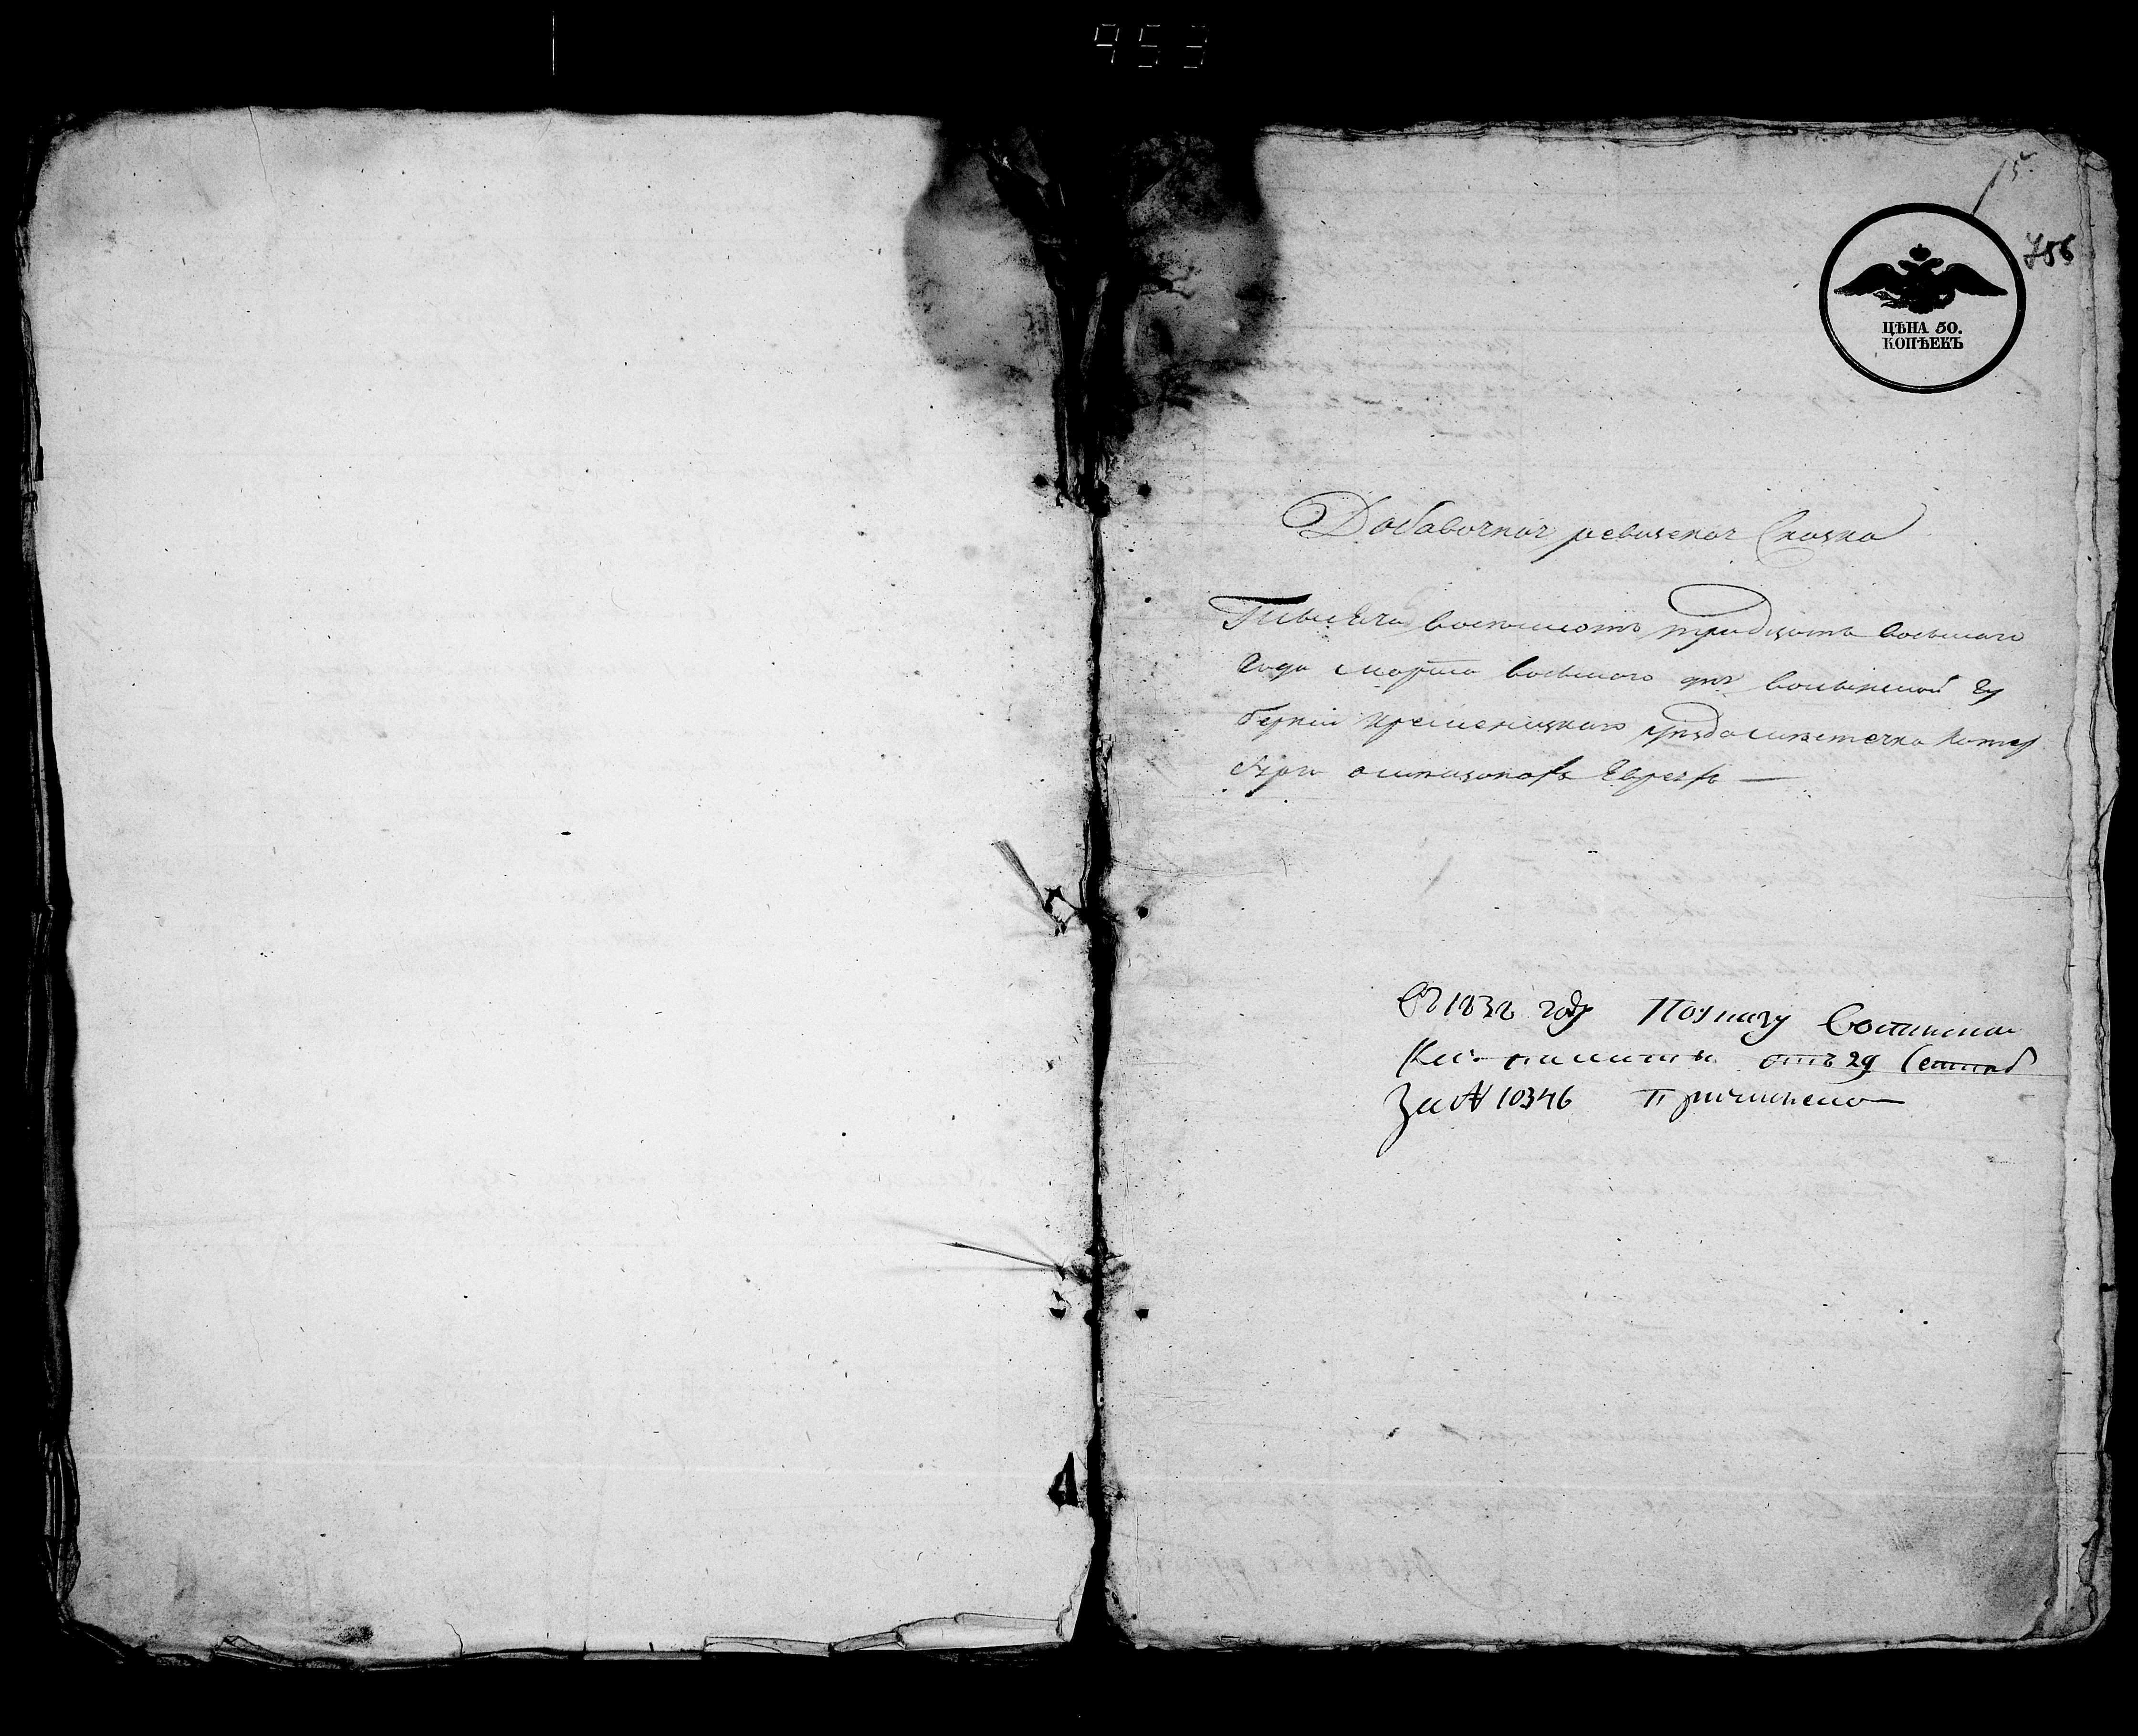 453
15
756
ЦѢНА 50.
КОПѢЕКЪ
Добавочная ревизская Сказка
Тысяча восемьсотъ тридцать восьмаго
Года марта восьмаго дня волынской Гу
берніи кременецкаго уѣзда местечка Кате
бурга о евреяхъ
1838 году По указу
отъ 29 Сентяб
За № 10346 Причислено